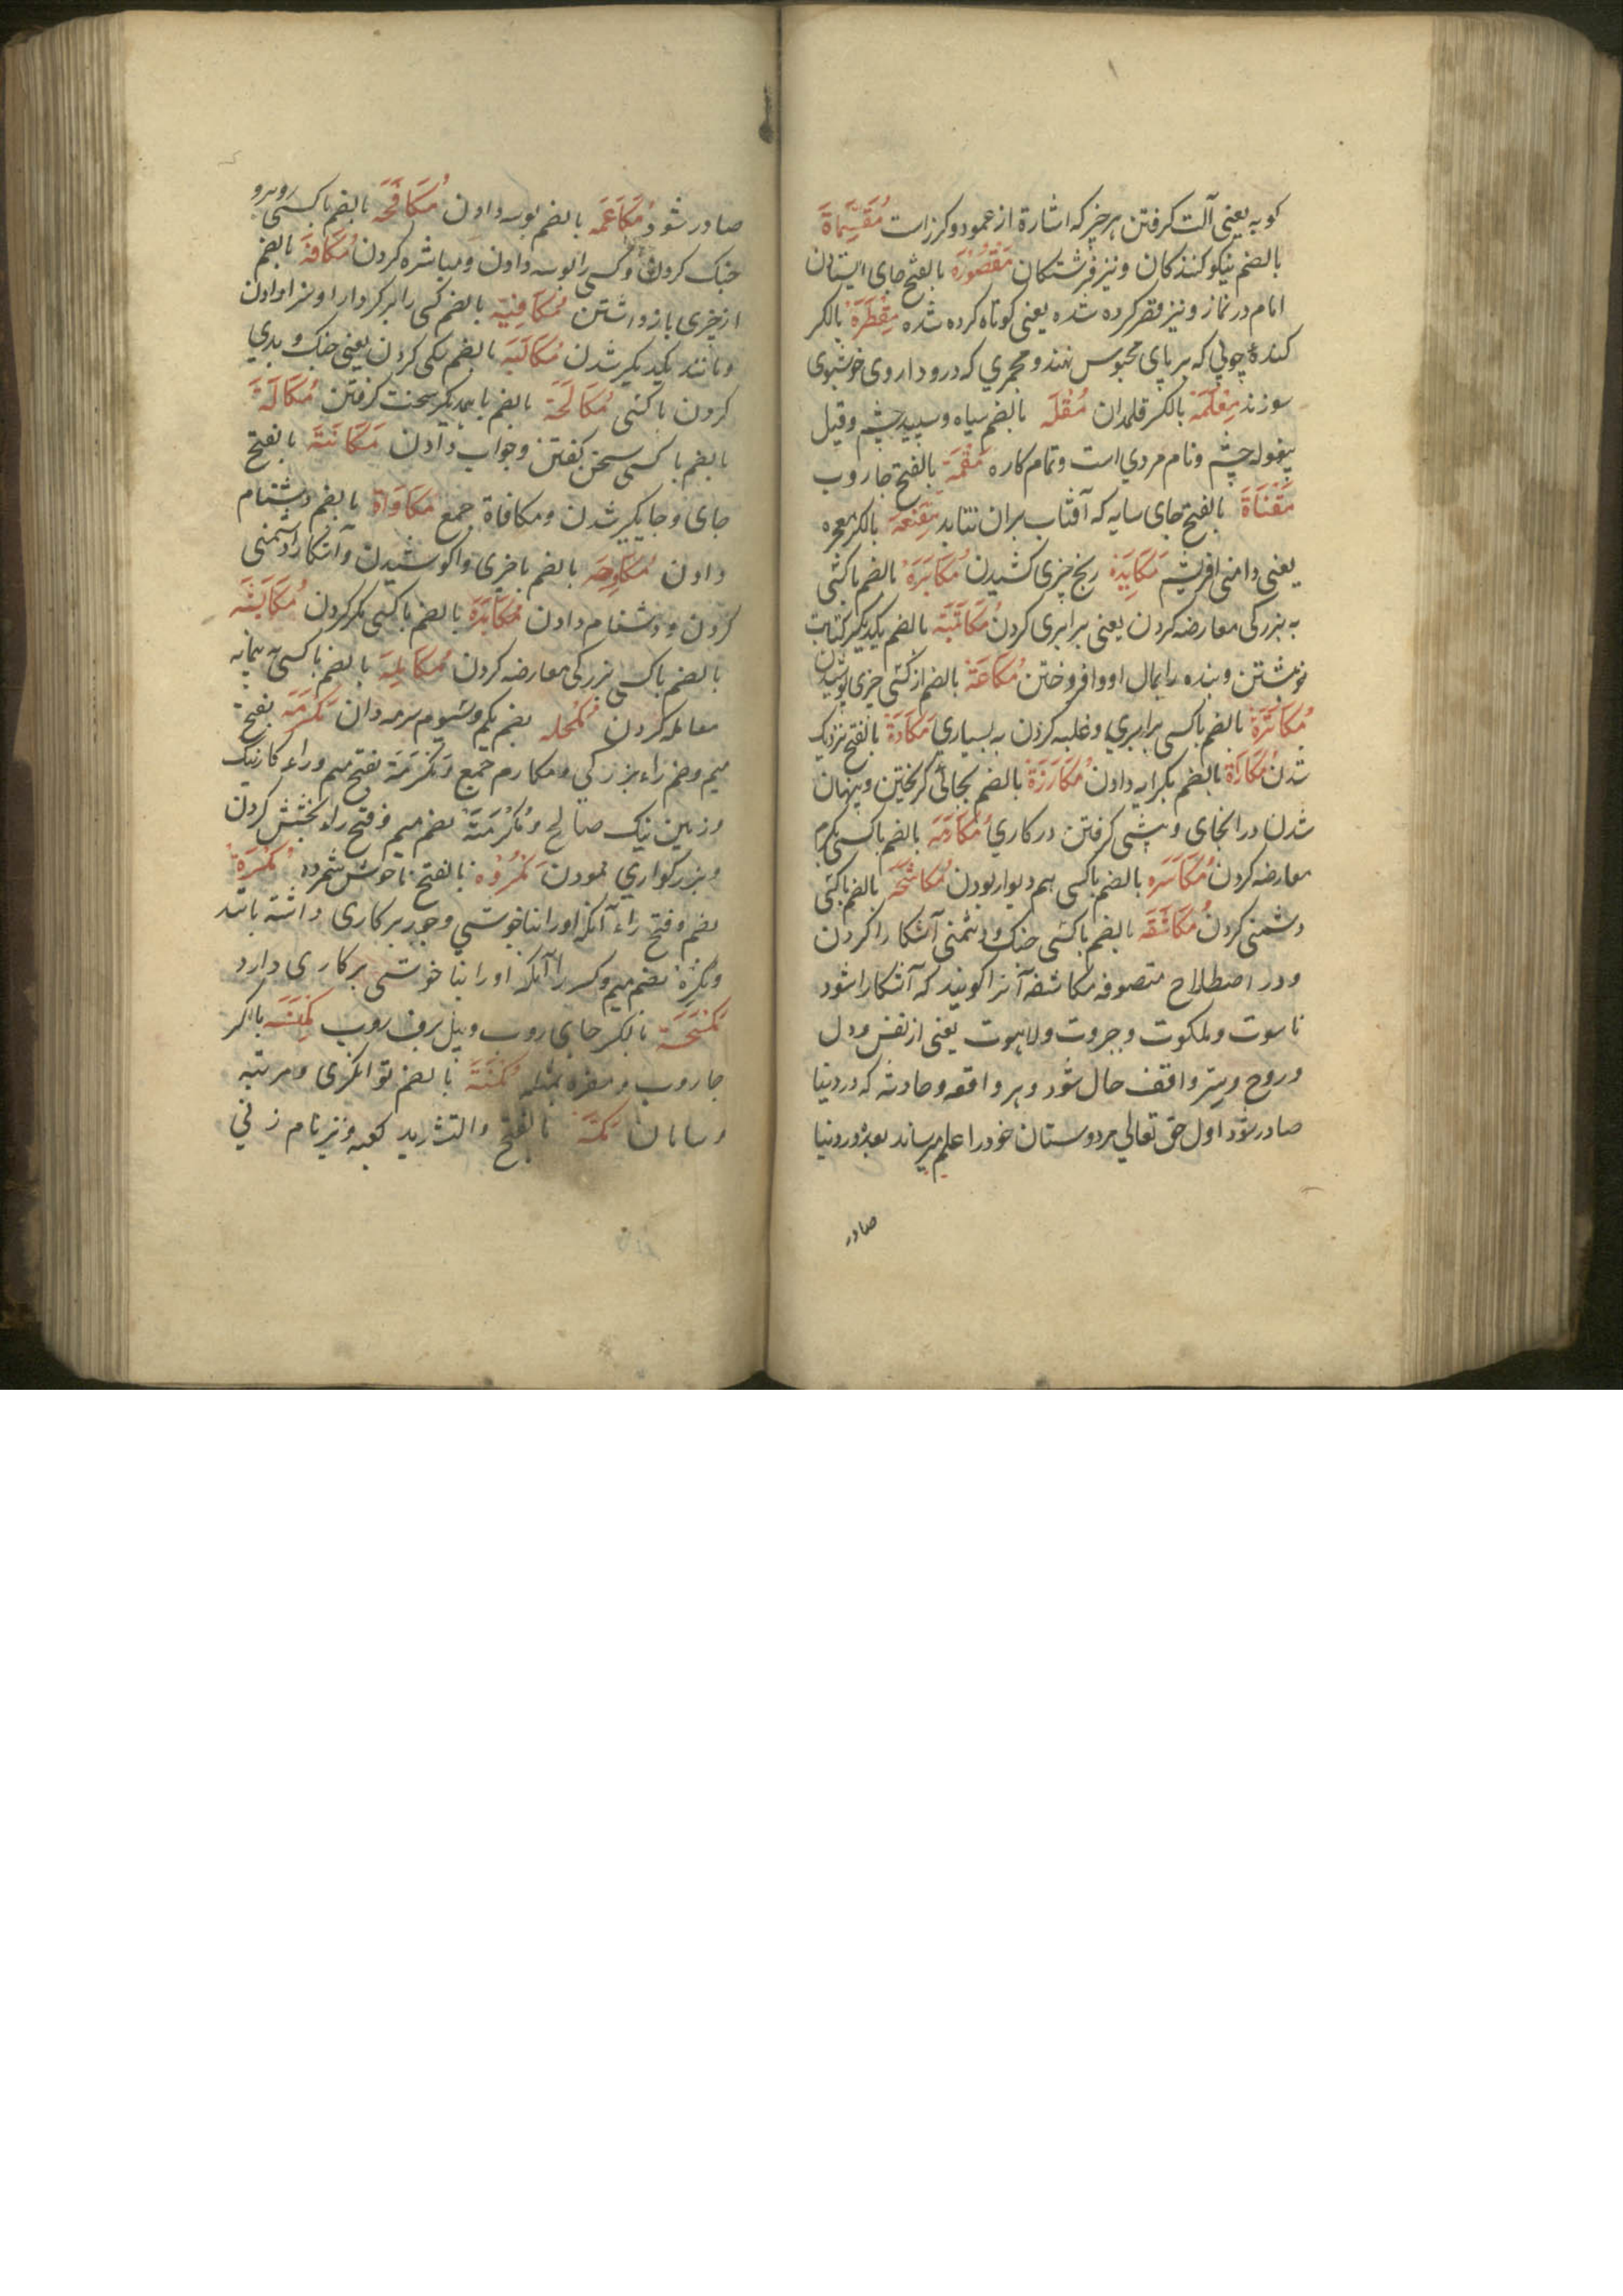 کوبه یعنی آلت کرفتن هر چیز که اشارة از عمود و کرز است مُقَسِّمَاة
بالضم نیکو کنندکان و نیز فرشتکان مَقْصُوْرَه بالفتح جای ایستادن
امام در نماز و نیز قصر کرده شده یعنی کوتاه کرده شده مِقْطَرَة بالکسر
کندهٔ چوبی که بر پای محبوس نهند و مجمری که درو داروی خوشبوی
سوزند مِقْلَمَة بالکسر قلمدان مُقْلَه بالضم سیاه و سپید چشم و قیل
پیغوله چشم و نام مردي است و تمام کاره مَقَمَّة بالفتح جاروب
مَقْنَاَة بالفتح جای سایه که آفتاب بران نتابد مِقْنَعَه بالکسر معجره
یعنی دامنی ابریشم مُکَابَدَه رنج چیزی کشیدن مُکَابَرَه بالضم با کسی
به بزرکی معارضه کردن یعنی برابری کردن مُکَاتَبَة بالضم یکدیکر کتابت
نوشتن و بنده را بمال او وا فروختن بالضم از کسی چیزی پوشیدن
مُکَاثَرَة بالضم با کسی برابري و غلبه کردن به بسیاري مَکَادَة بالفتح نزدیک
شدن مُکَارَاة بالضم بکرایه دادن مُکَارَزَة بالضم بجائی کریختن و پنهان
شدن در انجای و پیشی کرفتن در کاري مُکَارَمَه بالضم با کسی بکرم
معارضه کردن مُکَاسَرَه بالضم با کسی هم دیوار بودن مُکَاشَحَه بالضم با کسی
دشمنی کردن مُکَاشَفَه بالضم با کسی جنک و دشمنی آشکارا کردن
و در اصطلاح متصوفه مکاشفه آنرا کویند که آشکارا شود
ناسوت و ملکوت و جبروت و لاهوت یعنی از نفس و دل
و روح و سِرّ واقف حال شود و هر واقعه و حادثه که در دنیا
صادر شود اول حق تعالی بر دوستان خود را علم میرساند بعدزو در دنیا
صادر
صادر شود مُکَاعَمَه بالضم بوسه دادن مُکَافَحَه بالضم با کسی روبرو
جنک کردن و کسی را بوسه دادن و مباشره کردن مُکَافَّة بالضم
از چیزی باز داشتن بالضم کسی را بر کردار او سزا دادن
و مانند یکدیکر شدن مُکَالَبَه بالضم سکی کردن یعنی جنک و بدي
کردن با کسی مُکَالَحَة بالضم با همدیکر سخت کرفتن مُکَالَمَة
بالضم با کسی سخن کفتن و جواب دادن مَکَانَتَه بالفتح
جای و جایکیر شدن و مکافاة جمع مُکَاوَاة بالضم دشنام
دادن مُکَاوَحَه بالضم با چیزی واکوشیدن و آشکارا دشمنی
کردن و دشنام دادن مُکَایَدَه بالضم با کسی مکر کردن
بالضم با کسی بزرکی معارضه کردن مُکَایَلَه بالضم با کسی پیمانه
معامله کردن مُکْحُله بضم یکم و سیوم سرمه دان مَکْرُمَه بفتح
میم و ضم راء بزرکی و مکارم جمع و مَکْرَمَة بفتح میم و راء کار نیک
و زمین نیک صالح و مُکْرَمَة بضم میم و فتح راء بخشش کردن
و بزرکواري نمودن مَکْرُوْه بالفتح ناخوش شمرده مُکْرَهَة
بضم و فتح راء آنکه اورا بناخوشي و جور بر کاری داشته باشد
و مُکْرِهَة بضم میم و کسر را آنکه اورا بناخوشی بر کاری دارد
مِکْسَحَة بالکسر جای روب و بیل برف روب مِکْنَسَه بالکسر
جاروب و مغزه بمثله مُکْنَة بالضم توانکری و مرتبه
و سامان مَکَّة بالفتح والتشدید کعبه و نیز نام زنی